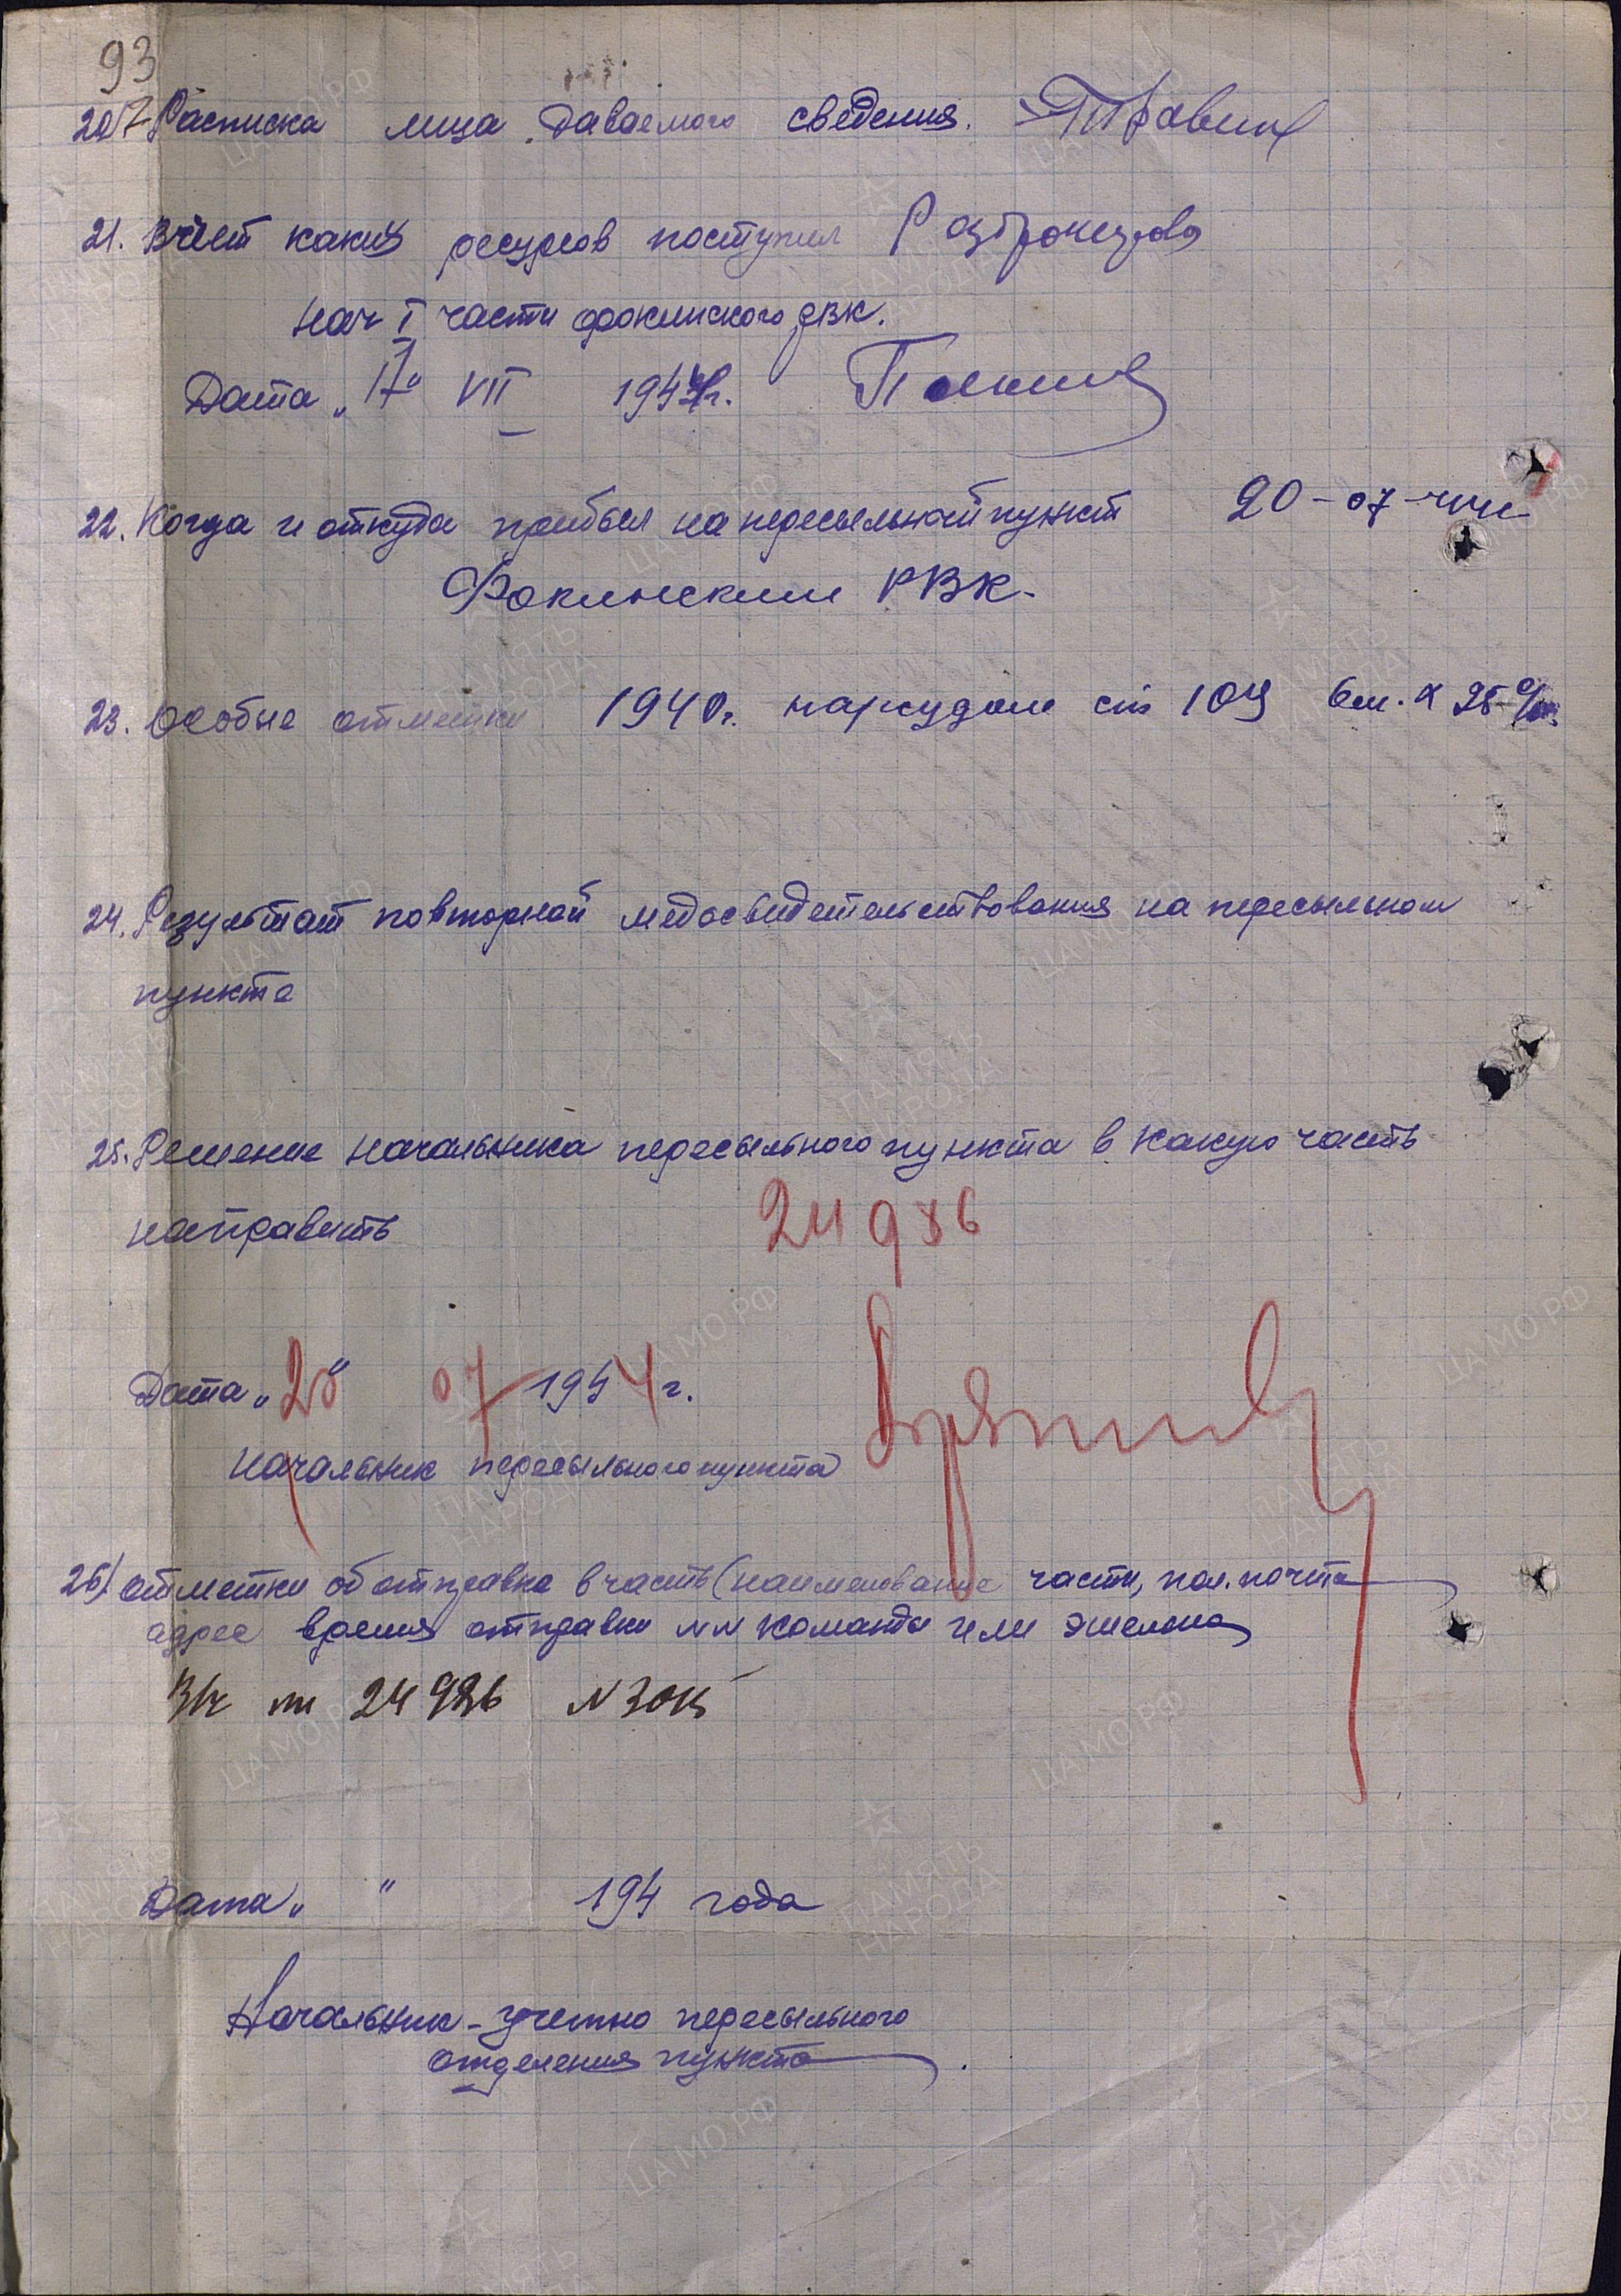 93
20/ Расписка лица даваемого сведения. Травин
21. В счет каких ресурсов поступил Разбронирова
нач I части фокинского РВК.
Дата „17“ VII 1944г.
22. Когда и откуда прибыл на пересыльной пункт 20-07-44
Фокинским РВК.
23. Особые отметки 1940г. нарсудом ст 109 6м. 25%
24. Результат повторной медосвидетельствования на пересыльном
пункте
25. Решение начальника пересыльного пункта в какую часть
направить 24986
Дата „20“ 07 1944г.
Начальник пересыльного пункта
26/ отметки об отправке в часть (наименование части, пол. почта
адрес время отправки NN команды или эшелона
В/ч пп 24986 N
Дата „ “ 194 года
Начальник - учетно пересыльного
отделения пункта